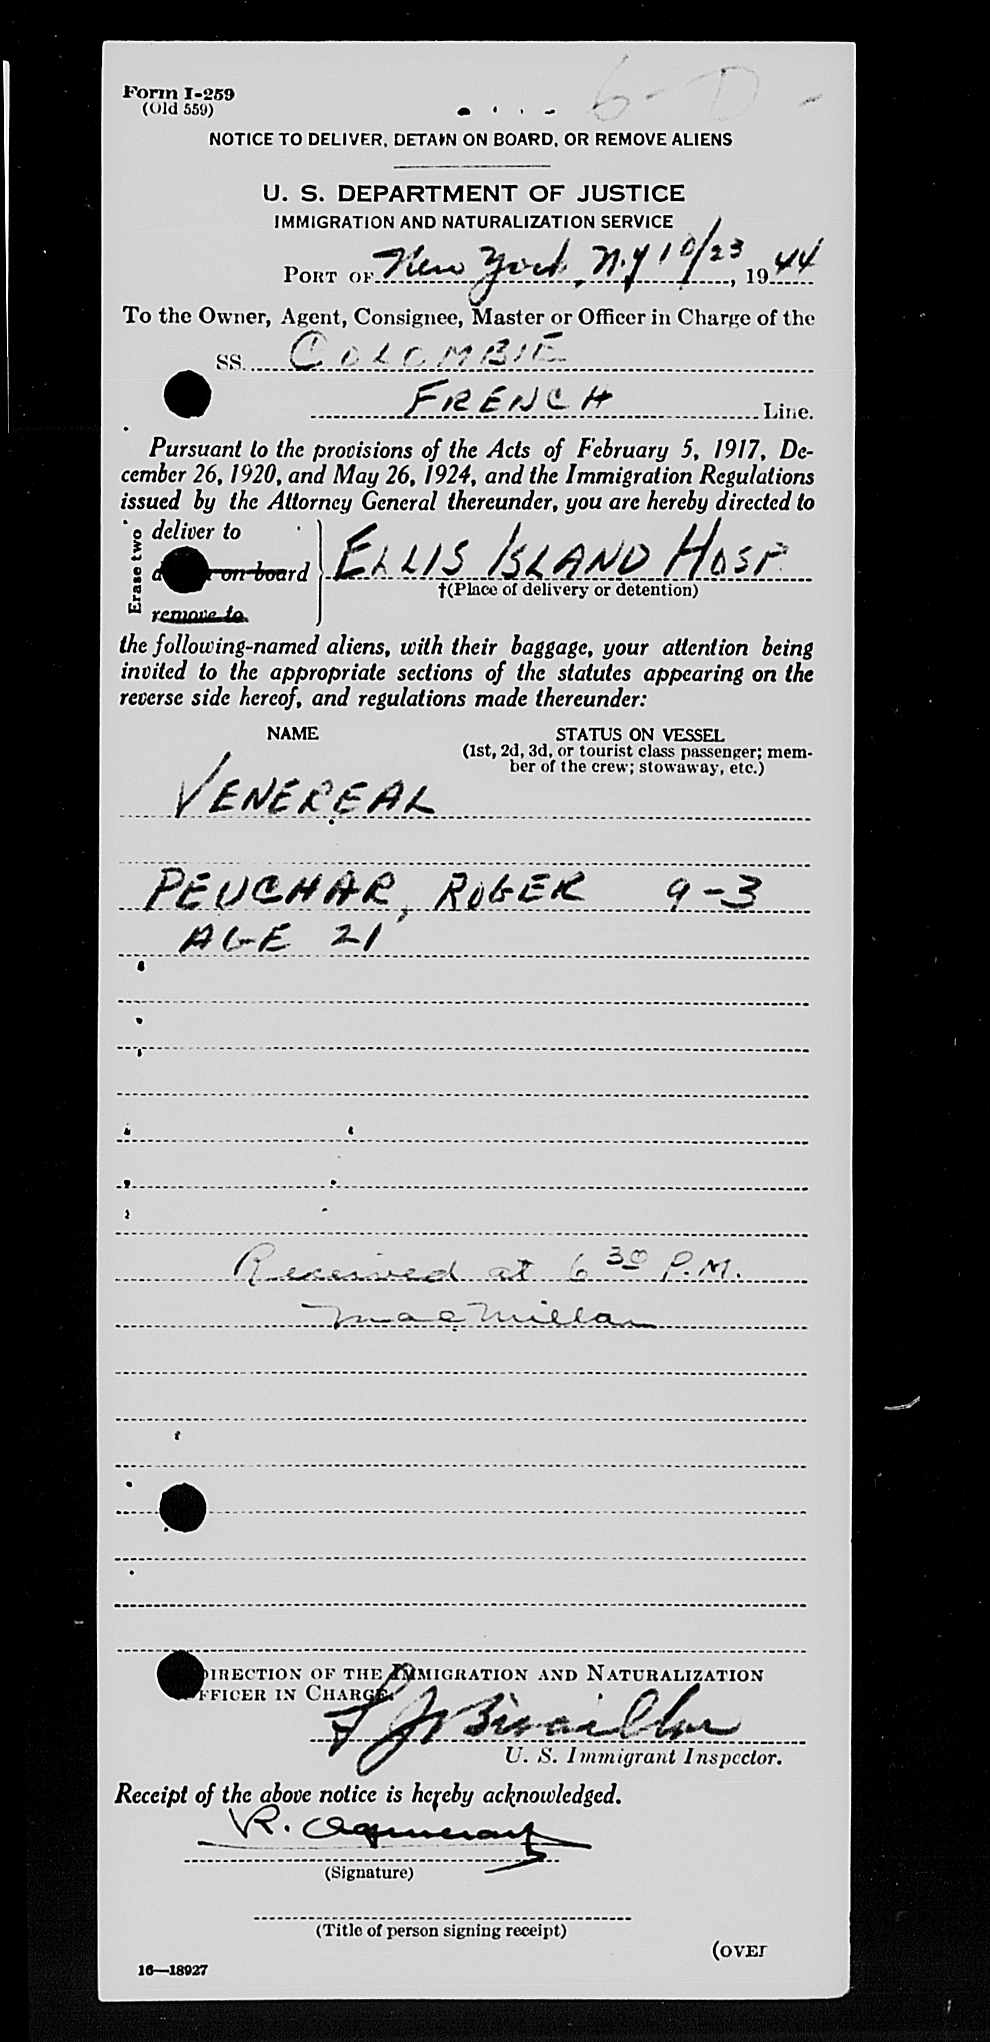 Form I-259
(Old 559)
6-D-
NOTICE TO DELIVER, DETAIN ON BOARD, OR REMOVE ALIENS
U. S. DEPARTMENT OF JUSTICE
IMMIGRATION AND NATURALIZATION SERVICE
PORT OF New York, N.Y 10/23, 1944
To the Owner, Agent, Consignee, Master or Officer in Charge of the
SS. COLOMBIE
FRENCH Line.
Pursuant to the provisions of the Acts of February 5, 1917, De-
cember 26, 1920, and May 26, 1924, and the Immigration Regulations
issued by the Attorney General thereunder, you are hereby directed to
Erase two
deliver to
on board
remove to
ELLIS ISLAND HOSP
†(Place of delivery or detention)
the following-named aliens, with their baggage, your attention being
invited to the appropriate sections of the statutes appearing on the
reverse side hereof, and regulations made thereunder:
NAME STATUS ON VESSEL
(1st, 2d, 3d, or tourist class passenger; mem-
ber of the crew; stowaway, etc.)
VENEREAL
PEUCHAR, ROGER 9-3
AGE 21
Received at 6 30 P.M.
MacMillan
DIRECTION OF THE IMMIGRATION AND NATURALIZATION
OFFICER IN CHARGE.
U. S. Immigrant Inspector.
Receipt of the above notice is hereby acknowledged.
R.
(Signature)
(Title of person signing receipt)
(OVER
16—18927